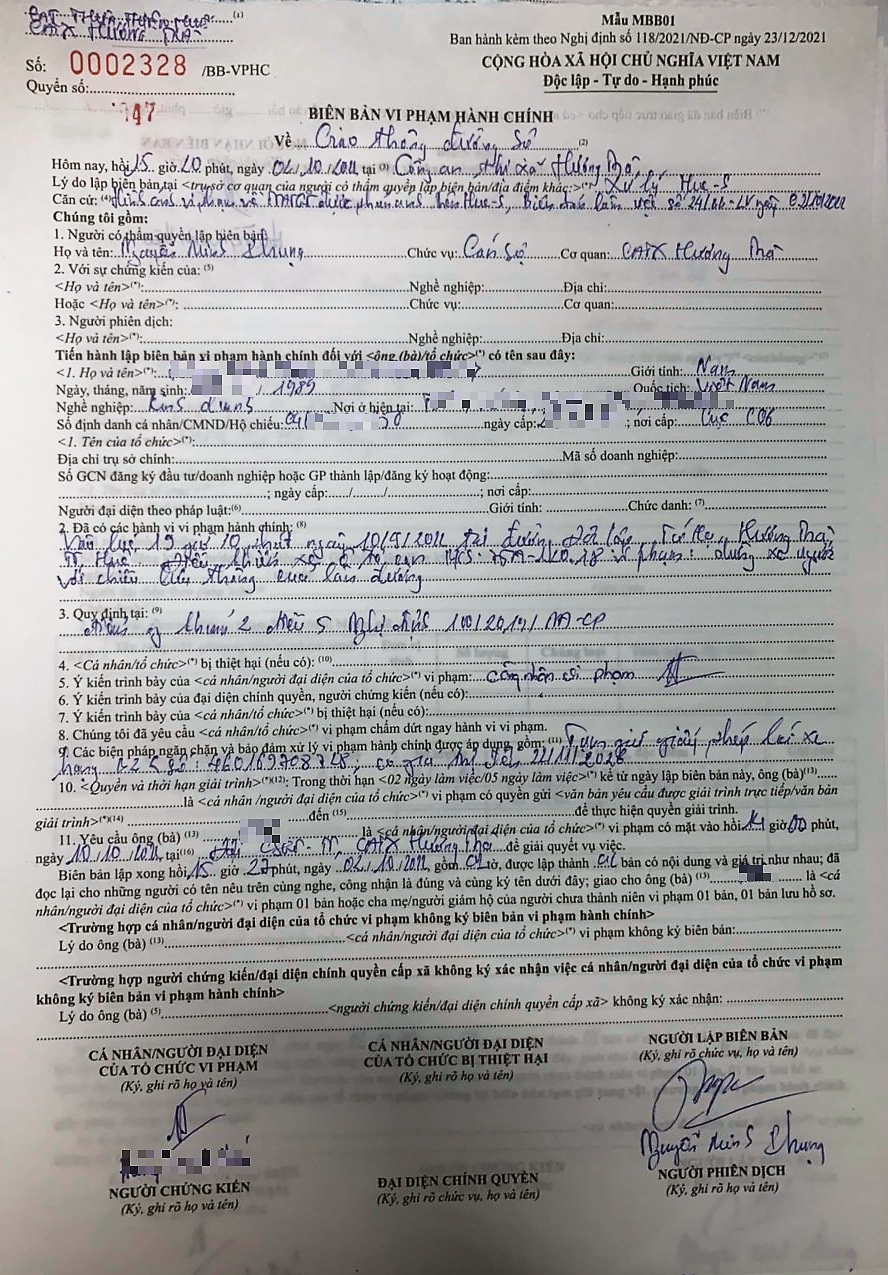 CAT. THỪA THIÊN HUẾ (1)
CATX HƯƠNG TRÀ
Mẫu MBB01
Ban hành kèm theo Nghị định số 118/2021/NĐ-CP ngày 23/12/2021
Số: 0002328 /BB-VPHC
CỘNG HÒA XÃ HỘI CHỦ NGHĨA VIỆT NAM
Quyển số:
Độc lập - Tự do - Hạnh phúc
47
BIÊN BẢN VI PHẠM HÀNH CHÍNH
Về Giao thông đường bộ (2)
Hôm nay, hồi 15 giờ 20 phút, ngày 04/10/2022 tại (3) Công an thị xã Hương Trà
Lý do lập biên bản tại <trụ sở cơ quan của người có thẩm quyền lập biên bản/địa điểm khác>(*): Xử lý Hue-S
Căn cứ: (4) Hình ảnh vi phạm về TTATGT được phản ánh trên Hue-S, Biên bản làm việc số
Chúng tôi gồm:
1. Người có thẩm quyền lập biên bản:
Họ và tên: Nguyễn Minh Phụng Chức vụ: Cán bộ Cơ quan: CATX Hương Trà
2. Với sự chứng kiến của: (5)
<Họ và tên>(*): Nghề nghiệp: Địa chỉ:
Hoặc <Họ và tên>(*): Chức vụ: Cơ quan:
3. Người phiên dịch:
<Họ và tên>(*): Nghề nghiệp: Địa chỉ:
Tiến hành lập biên bản vi phạm hành chính đối với <ông (bà)/tổ chức>(*) có tên sau đây:
<1. Họ và tên>(*): Giới tính: Nam
Ngày, tháng, năm sinh: / 1989 Quốc tịch: Việt Nam
Nghề nghiệp: Nơi ở hiện tại:
Số định danh cá nhân/CMND/Hộ chiếu: ngày cấp: ; nơi cấp: Cục C06
<1. Tên của tổ chức>(*):
Địa chỉ trụ sở chính: Mã số doanh nghiệp:
Số GCN đăng ký đầu tư/doanh nghiệp hoặc GP thành lập/đăng ký hoạt động:
; ngày cấp: / / ; nơi cấp:
Người đại diện theo pháp luật:(6) Giới tính: Chức danh: (7)
2. Đã có các hành vi vi phạm hành chính: (8)
Vào lúc 19 giờ 10 phút ngày 10/9/2022 tại đường Độc lập, Tứ Hạ, Hương Trà,
TT Huế điều khiển xe ô tô con BKS: 75A-120.18 vi phạm: dừng xe ngược
với chiều lưu thông của làn đường
3. Quy định tại: (9)
Điểm g khoản 2 điều 5 Nghị định 100/2019/NĐ-CP
4. <Cá nhân/tổ chức>(*) bị thiệt hại (nếu có): (10)
5. Ý kiến trình bày của <cá nhân/người đại diện của tổ chức>(*) vi phạm: công nhận vi phạm
6. Ý kiến trình bày của đại diện chính quyền, người chứng kiến (nếu có):
7. Ý kiến trình bày của <cá nhân/tổ chức>(*) bị thiệt hại (nếu có):
8. Chúng tôi đã yêu cầu <cá nhân/tổ chức>(*) vi phạm chấm dứt ngay hành vi vi phạm.
9. Các biện pháp ngăn chặn và bảo đảm xử lý vi phạm hành chính được áp dụng, gồm: (11) Tạm giữ giấy phép lái xe
hạng B2 số: 460169708748, có giá trị đến
10. <Quyền và thời hạn giải trình>(*)(12): Trong thời hạn <02 ngày làm việc/05 ngày làm việc>(*) kể từ ngày lập biên bản này, ông (bà)(13)
là <cá nhân /người đại diện của tổ chức>(*) vi phạm có quyền gửi <văn bản yêu cầu được giải trình trực tiếp/văn bản
giải trình>(*)(14) đến (15) để thực hiện quyền giải trình.
11. Yêu cầu ông (bà) (13) là <cá nhân/người đại diện của tổ chức>(*) vi phạm có mặt vào hồi 14 giờ 00 phút,
ngày 10/10/2022 tại(16) Đội CSGT-TT, CATX Hương Trà để giải quyết vụ việc.
Biên bản lập xong hồi 15 giờ 27 phút, ngày 04/10/2022, gồm 01 tờ, được lập thành 02 bản có nội dung và giá trị như nhau; đã
đọc lại cho những người có tên nêu trên cùng nghe, công nhận là đúng và cùng ký tên dưới đây; giao cho ông (bà) (13) là <cá
nhân/người đại diện của tổ chức>(*) vi phạm 01 bản hoặc cha mẹ/người giám hộ của người chưa thành niên vi phạm 01 bản, 01 bản lưu hồ sơ.
<Trường hợp cá nhân/người đại diện của tổ chức vi phạm không ký biên bản vi phạm hành chính>
Lý do ông (bà) (13) <cá nhân/người đại diện của tổ chức>(*) vi phạm không ký biên bản:
<Trường hợp người chứng kiến/đại diện chính quyền cấp xã không ký xác nhận việc cá nhân/người đại diện của tổ chức vi phạm
không ký biên bản vi phạm hành chính>
Lý do ông (bà) (5) <người chứng kiến/đại diện chính quyền cấp xã> không ký xác nhận:
CÁ NHÂN/NGƯỜI ĐẠI DIỆN
CỦA TỔ CHỨC VI PHẠM
(Ký, ghi rõ họ và tên)
CÁ NHÂN/NGƯỜI ĐẠI DIỆN
CỦA TỔ CHỨC BỊ THIỆT HẠI
(Ký, ghi rõ họ và tên)
NGƯỜI LẬP BIÊN BẢN
(Ký, ghi rõ chức vụ, họ và tên)
Nguyễn Minh Phụng
NGƯỜI CHỨNG KIẾN
(Ký, ghi rõ họ và tên)
ĐẠI DIỆN CHÍNH QUYỀN
(Ký, ghi rõ chức vụ, họ và tên)
NGƯỜI PHIÊN DỊCH
(Ký, ghi rõ họ và tên)